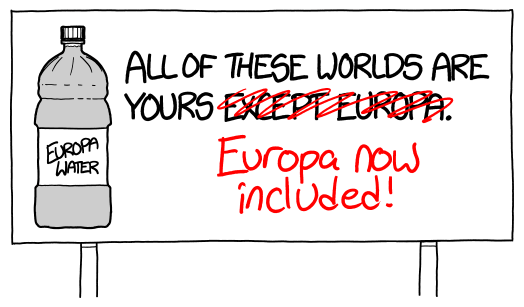 EUROPA
WATER
ALL OF THESE WORLDS ARE
YOURS EXCEPT EUROPA.
Europa now
included!